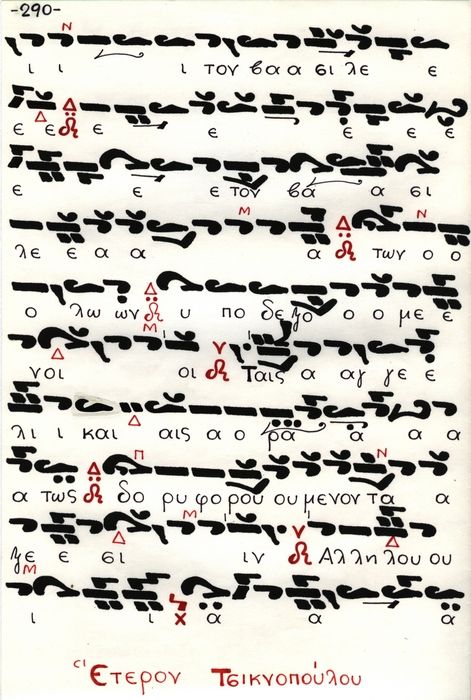 -290-
ι ι ι τον βα α σι λε ε
ε ε ε ε ε ε ε
ε ε ε τον βα α σι
λε ε α α α των ο ο
ο λω ων υ πο δε ξο ο ο με ε
νοι οι Ταις α αγ γε ε
λι ι και αις α ο ρα α α α
α τως δο ρυ φο ρου ου με νον τα α
ξε ε σι ιν Αλ λη λου ου
ι ι α α α
Ετερον Τσικνοπούλου